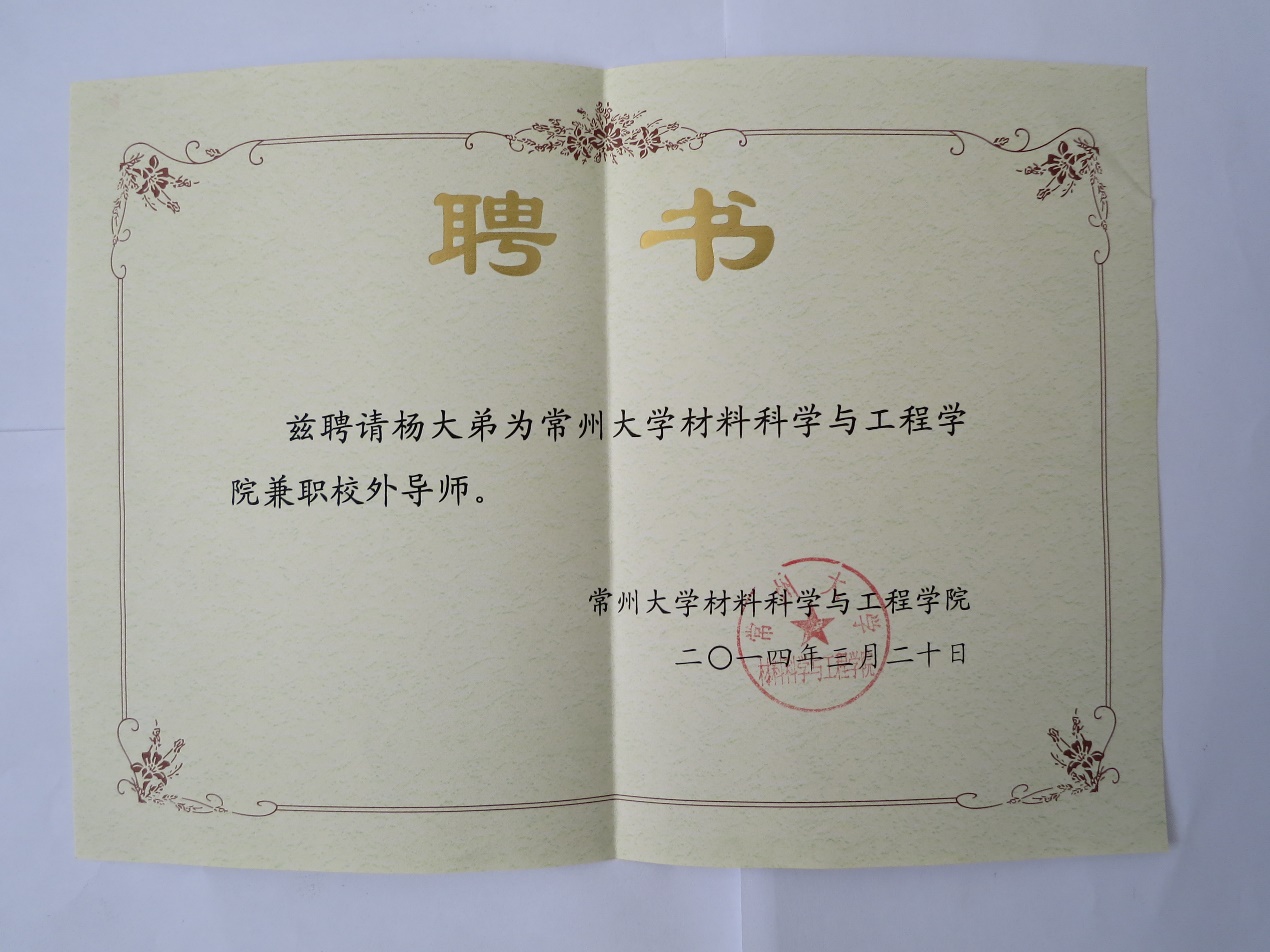 聘 书
兹聘请杨大弟为常州大学材料科学与工程学
院兼职校外导师。
常州大学材料科学与工程学院
二〇一四年三月二十日
常州大学
材料科学与工程学院